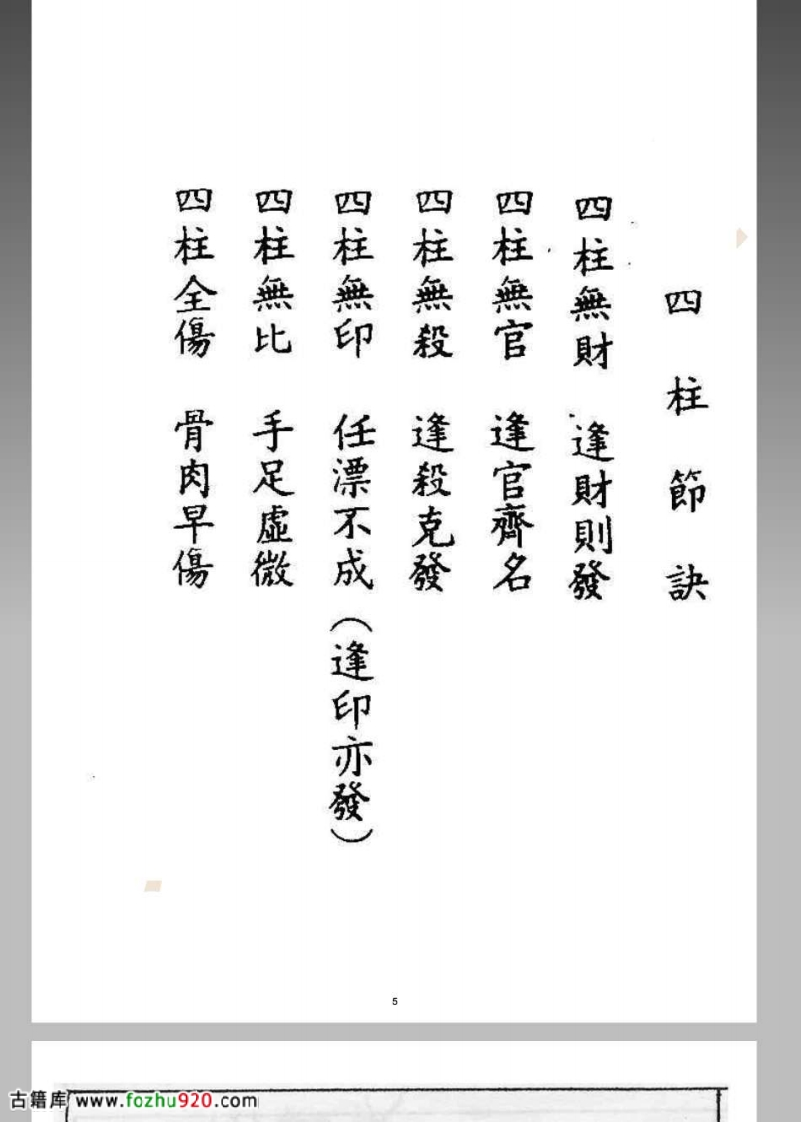 四柱節訣
四柱無財 逢財則發
四柱無官 逢官齊名
四柱無殺 逢殺克發
四柱無印 任漂不成（逢印亦發）
四柱無比 手足虛微
四柱全傷 骨肉早傷
5
古籍库 www.fozhu920.com